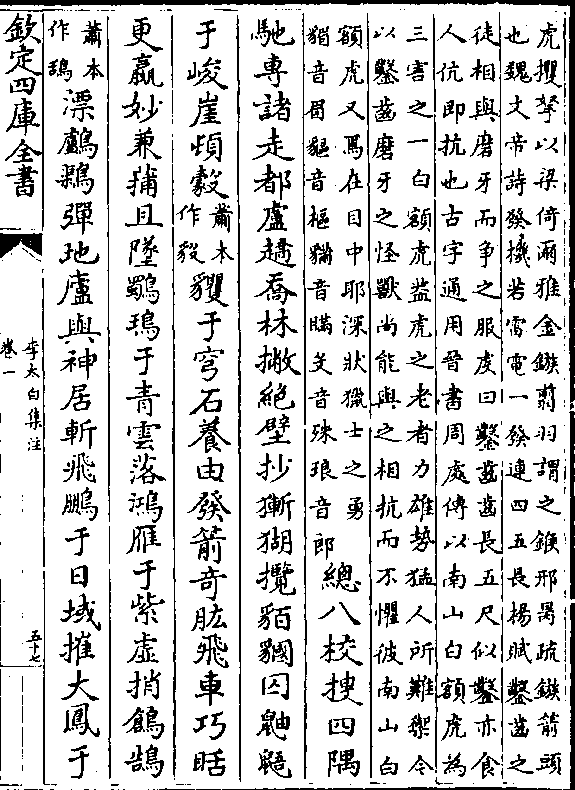 虎攫拏以梁倚爾雅金鏃翦羽謂之鍭邢昺疏鏃箭頭
也魏文帝詩發機若雷電一發連四五長楊賦鑿齒之
徒相與磨牙而争之服虔曰鑿齒齒長五尺似鑿亦食
人伉即抗也古字通用晉書周處傳以南山白額虎為
三害之一白額虎盖虎之老者力雄勢猛人所難禦今
以鑿齒磨牙之怪獸尚能與之相抗而不懼彼南山白
額虎又焉在目中耶深狀獵士之勇
音貙音樞音瞞殳音殊琅音郎
總八校搜四隅
馳專諸走都盧趫喬林撇絶壁抄獑猢攬貊囚鼬鼯
于峻崖頓縠蕭本作㺉玃于穹石養由發箭竒肱飛車巧聒
更羸妙兼蒲且墜鸀鳿于青雲落鴻雁于紫虚捎鶬鴰
蕭本作鴇漂鸕鶿彈地廬與神居斬飛鵬于日域摧大鳳于
欽定四庫全書
李太白集注
卷一
五十七